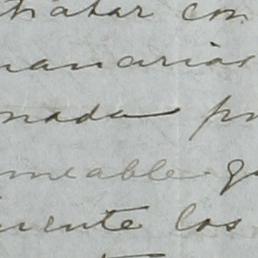 tratar con
nanarias
nada por
meable q
uente los